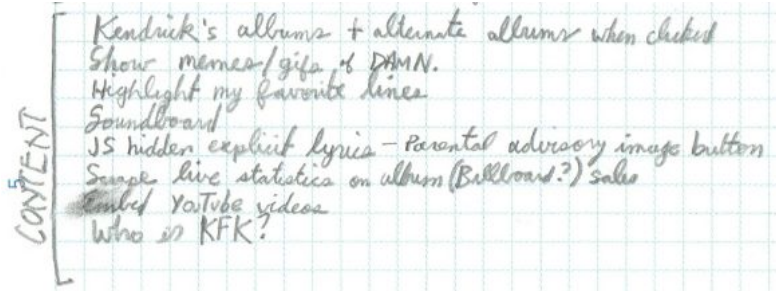 CONTENT
Kendrick's albums + alternate albums when clicked
Show memes/gifs of DAMN.
Highlight my favorite lines
Soundboard
JS hidden explicit lyrics – Parental advisory image button
Scrape live statistics on album (Billboard?) sales
Embed YouTube videos
Who is KFK?